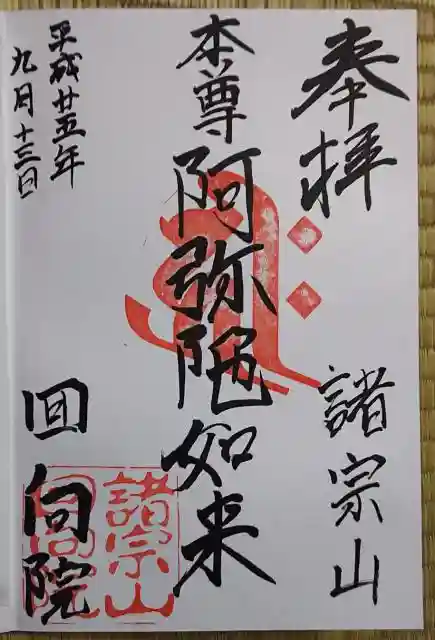 奉拝
諸宗山
本尊
阿弥陀如来
平成廿五年
九月十三日
回向院
諸宗山
回向院